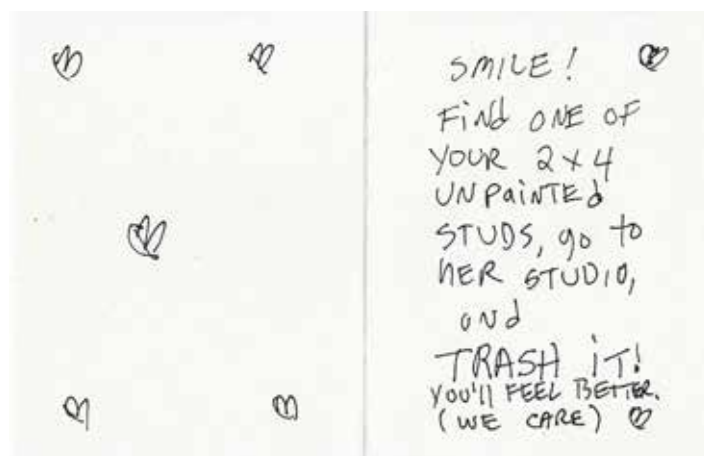 SMILE!
FiNd ONE OF
YOUR 2x4
UNPaiNTEd
STUDS, go to
hER STUDIO,
aNd
TRASH iT!
YOU'll FEEL BETTER.
(WE CARE)